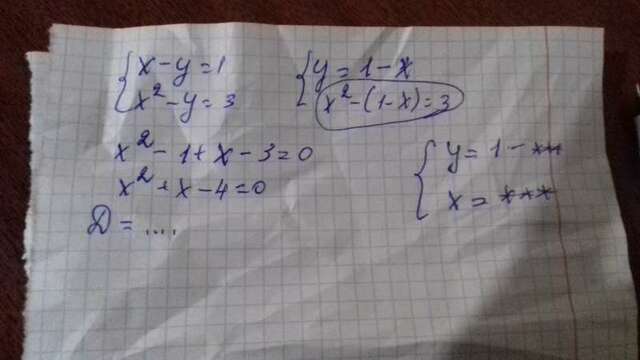 { x - y = 1
x² - y = 3
{ y = 1 - x
x² - (1 - x) = 3
x² - 1 + x - 3 = 0
x² + x - 4 = 0
D = ....
{ y = 1 - **
x = ***